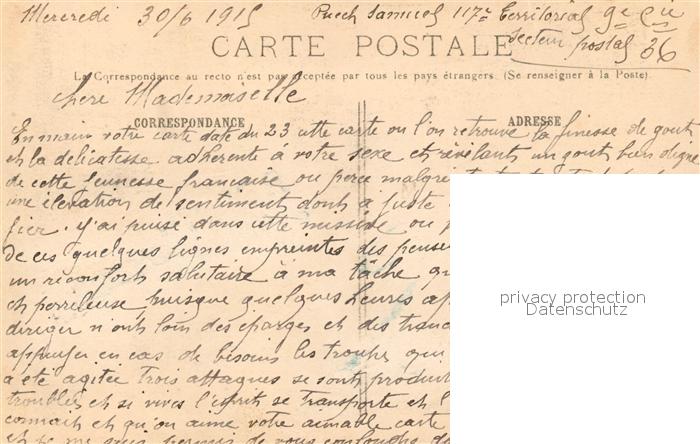 Mercredi 30/6 1915 Puech Samuel 117e Territorial 9e Cie
secteur postal 36
CARTE POSTALE
La Correspondance au recto n'est pas acceptée par tous les pays étrangers (Se renseigner à la Poste)
chere Mademoiselle
CORRESPONDANCE ADRESSE
En main votre carte date du 23 cette carte ou l'on retrouve la finesse de gout
et la délicatesse adherente à votre sexe et révélant un gout bien digne
de cette jeunesse francaise ou perce malgré
une élevation de sentiments dont à juste
fier. J'ai puisé dans cette missive ou
de ces quelques lignes empreintes des
un réconfort salutaire à ma tâche
et perrileuse, puisque quelques heures
diriger non loin des Eparges et des
appuyer en cas de besoins les troupes qui
a été agitée Trois attaques se sont
troublées et si vives l'esprit se transporte et
connait et qu'on aime votre aimable carte
et je me suis permis de vous
privacy protection
Datenschutz